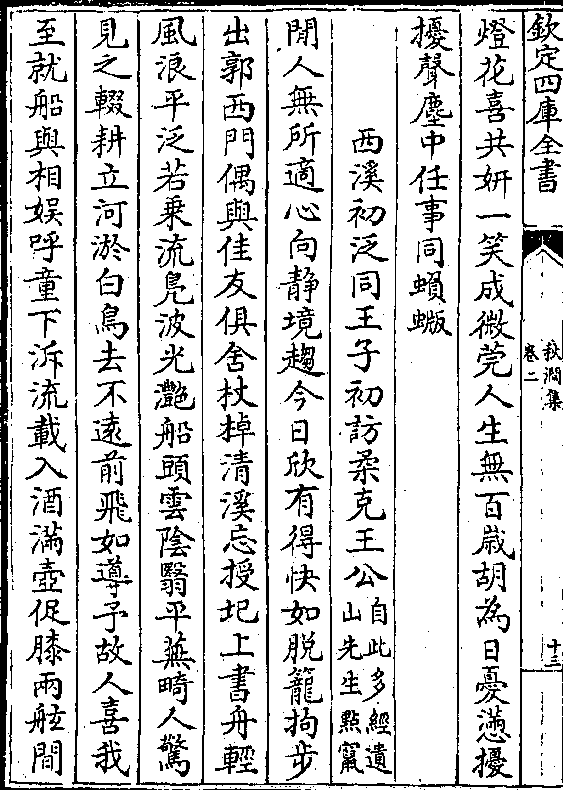 欽定四庫全書
秋澗集
卷二
十三
燈花喜共妍一笑成微莞人生無百歲胡為日憂懣擾
擾聲塵中任事同蝜蝂
西溪初泛同王子初訪柔克王公自此多經遺山先生點竄
閒人無所適心向静境趨今日欣有得快如脱籠拘步
出郭西門偶與佳友俱舍杖棹清溪忘授圯上書舟輕
風浪平泛若乗流鳬波光灧船頭雲陰翳平蕪畸人驚
見之輟耕立河淤白鳥去不逺前飛如導予故人喜我
至就船與相娱呼童下泝流載入酒滿壺促膝兩舷間